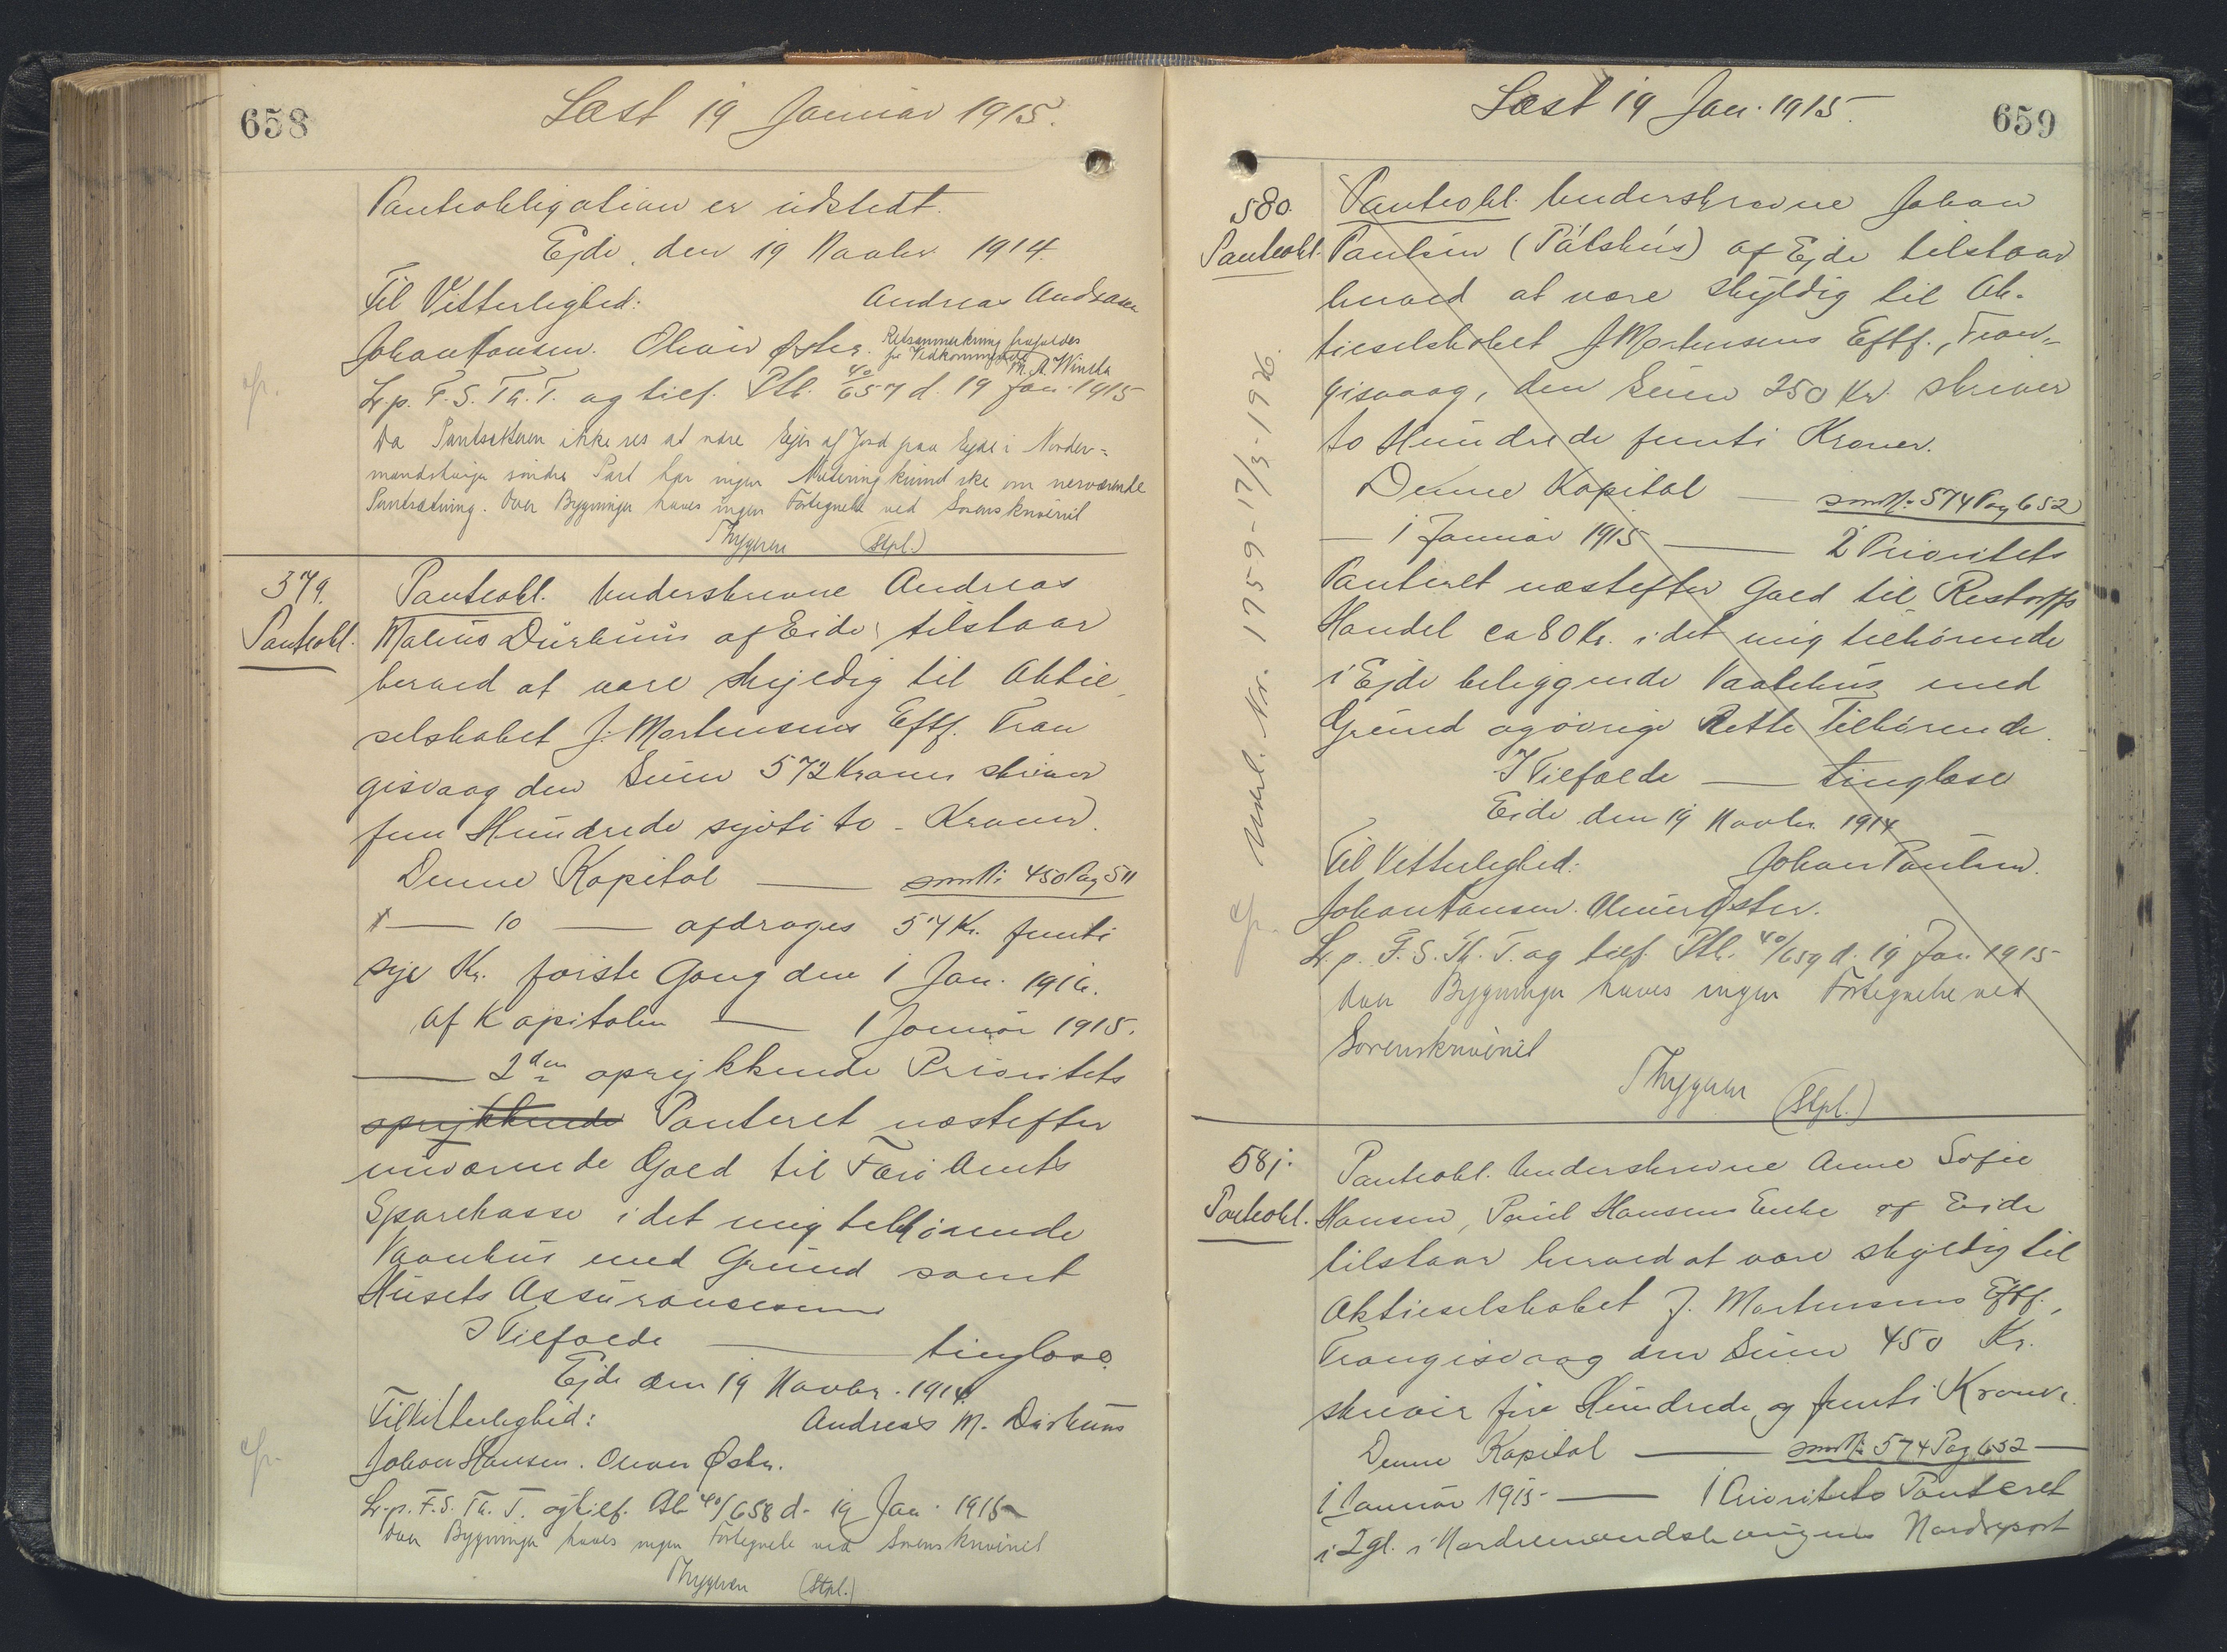 658
Læst 19 Januar 1915.
Panteobligation er udstedt.
Ejde, den 19 Novbr 1914.
Til Vitterlighed: Andreas Andreasen
Johan Hansen. Oliver Øster. Retsanmerkning frafaldes
for Vedkommende
L. p. F. S. Th. T. og tilf. Ptb. 40/657 d. 19 Jan. 1915
Da Pantsætteren ikke ses at være Ejer af Jord paa Ejde i Norder-
mandshauge söndre Part har ingen Notering kunnet ske om nerværende
Pantsætning. Over Bygninger haves ingen Fortegnelse ved Sorenskriveriet
Thygesen (Stpl.)
379.
Panteobl.
Panteobl. Underskrevne Andreas
Malius Durhuus af Eide, tilstaar
herved at være skyldig til Aktie
selskabet J. Mortensens Eftf. Tran
gisvaag den Sum 572 Kroner skriver
fem Hundrede syvti to - Kroner.
Denne Kapital — som No 450 Pag 511
1 — 10 — afdrages 57 Kr. femti
syv Kr. förste Gang den 1 Jan. 1916.
Af Kapitalen — 1 Januar 1915.
— 2den oprykkende Prioritets
oprykkende Panteret næstefter
nuværende Gæld til Færö Amts
Sparekasse i det mig tilhörende
Vaanhus med Grund samt
Husets Assurancesum
I Tilfælde — tinglæse.
Ejde den 19 Novbr. 1914.
Til Vitterlighed: Andreas M. Durhuus
Johan Hansen. Oliver Øster.
L. p. F. S. Th. T. og tilf. Ptb 40/658 d. 19 Jan. 1915
Over Bygninger haves ingen Fortegnelse ved Sorenskriveriet
Thygesen (Stpl.)
Læst 19 Jan. 1915.
659
580.
Panteobl.
Panteobl. Underskrevne Johan
Paulsen (Pálshús) af Ejde tilstaar
herved at være skyldig til Ak-
tieselskabet J. Mortensens Eftf., Tran-
gisvaag, den Sum 250 Kr. skriver
to Hundrede femti Kroner.
Denne Kapital — som No 574 Pag 652
— 1 Januar 1915 — 2 Prioritets
Panteret næstefter Gæld til Restorffs
Handel ca 80 Kr. i det mig tilhörende
i Ejde beliggende Vaatehus med
Grund og övrige Rette Tilhörende.
I Tilfælde — tinglæse
Eide den 19 Novbr. 1914
Til Vitterlighed: Johan Paulsen.
Johan Hansen. Oliver Øster.
L. p. F. S. Th. T. og tilf. Ptb. 40/659 d. 19 Jan. 1915
Over Bygninger haves ingen Fortegnelse ved
Sorenskriveriet
Thygesen (Stpl.)
Nr. 1759-17/3-1926.
581.
Panteobl.
Panteobl. Underskrevne Anne Sofie
Hansen, Paul Hansens Enke af Eide
tilstaar herved at være skyldig til
Aktieselskabet J. Mortensens Eftf.,
Trangisvaag den Sum 450 Kr.
skriver fire Hundrede og femti Kroner.
Denne Kapital — som No 574 Pag 652 —
1 Januar 1915 — 1 Prioritets Panteret
i 2 gl. i Nordremandshaugens Nordrepart